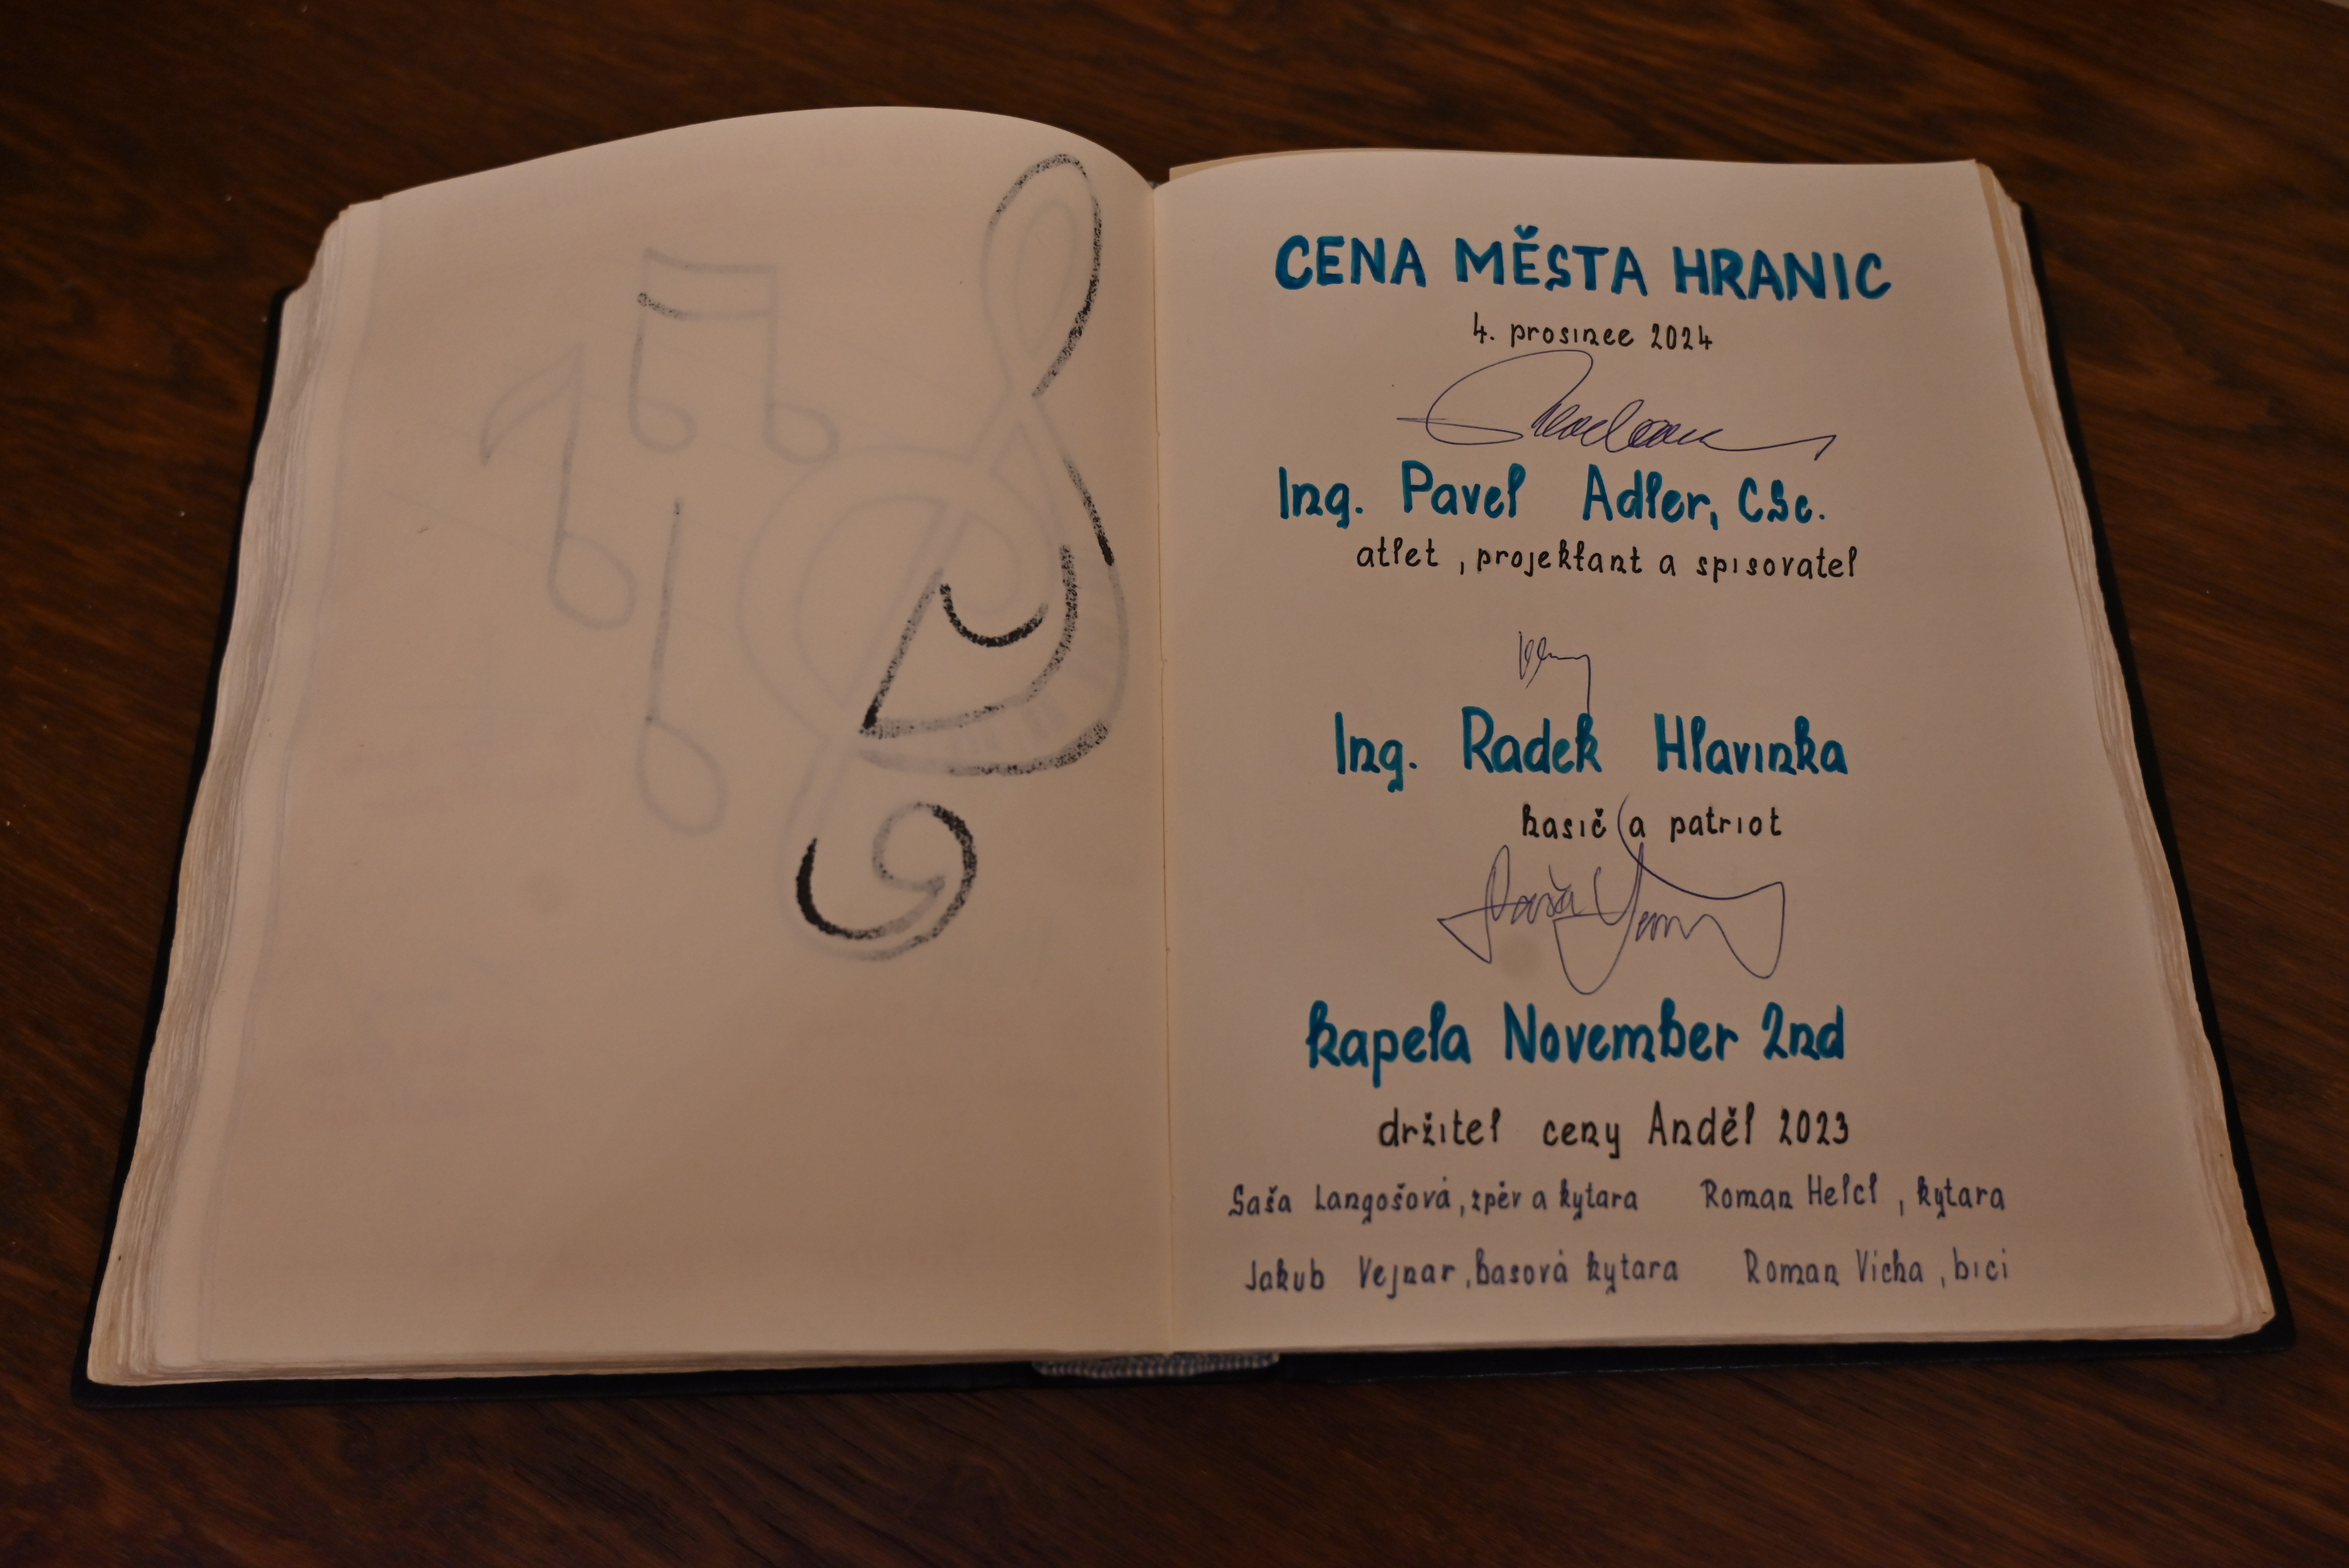 CENA MĚSTA HRANIC
4. prosinec 2024
Ing. Pavel Adler, CSc.
atlet, projektant a spisovatel
Ing. Radek Hlavinka
hasič a patriot
kapela November 2nd
držitel ceny Anděl 2023
Saša Langošová, zpěv a kytara Roman Helcl, kytara
Jakub Vejnar, basová kytara Roman Vícha, bicí